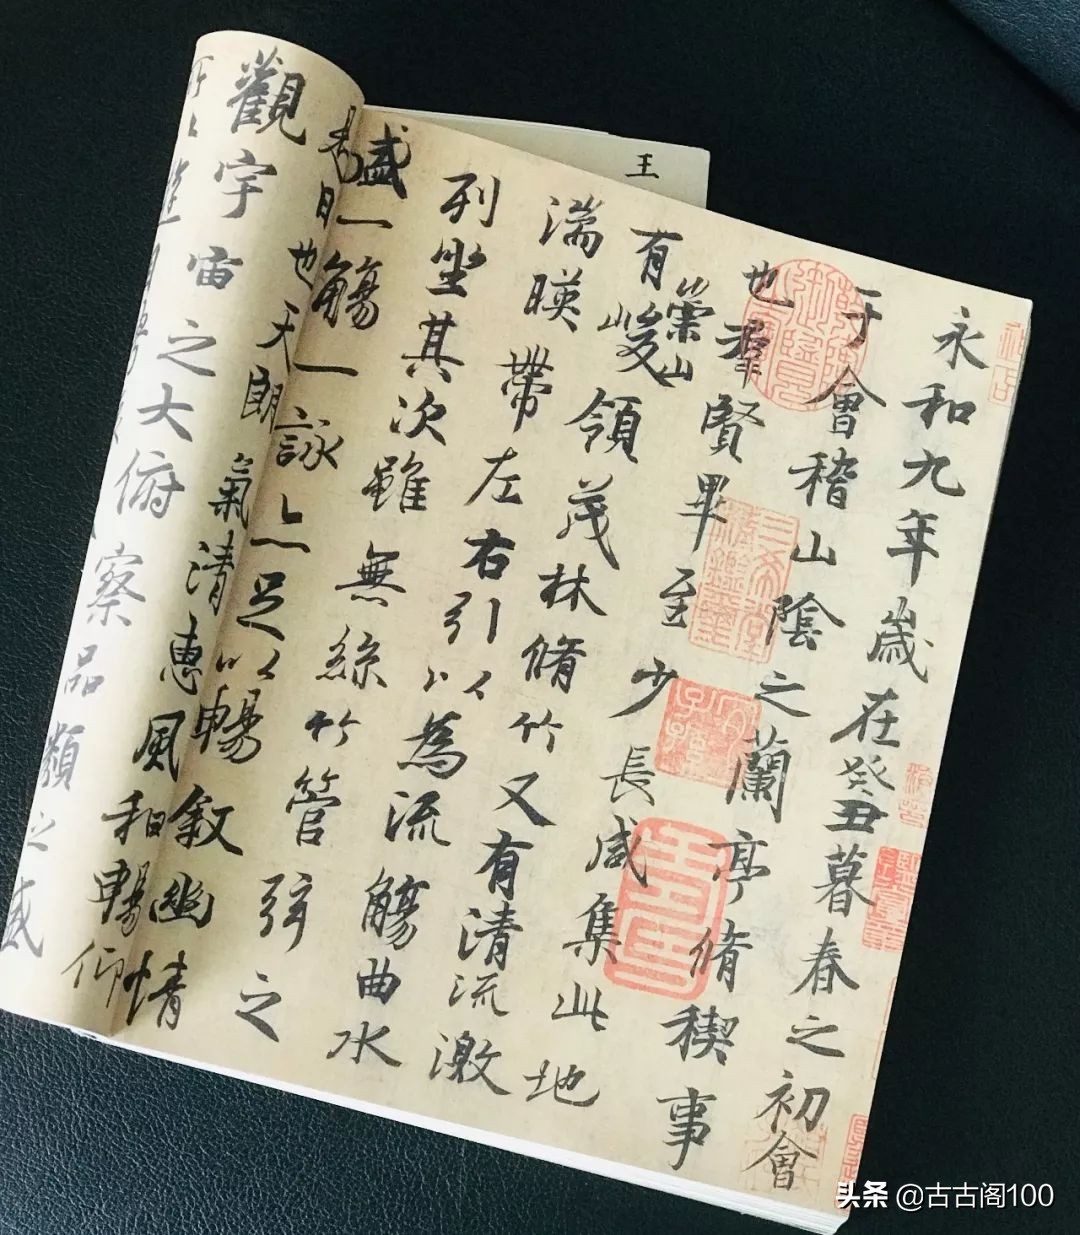 永和九年歲在癸丑暮春之初會
于會稽山陰之蘭亭脩稧事
也羣賢畢至少長咸集此地
有崇山峻領茂林脩竹又有清流激
湍暎帶左右引以為流觴曲水
列坐其次雖無絲竹管弦之
盛一觴一詠亦足以暢敘幽情
是日也天朗氣清惠風和暢仰
觀宇宙之大俯察品類之盛
王
头条 @古古阁100